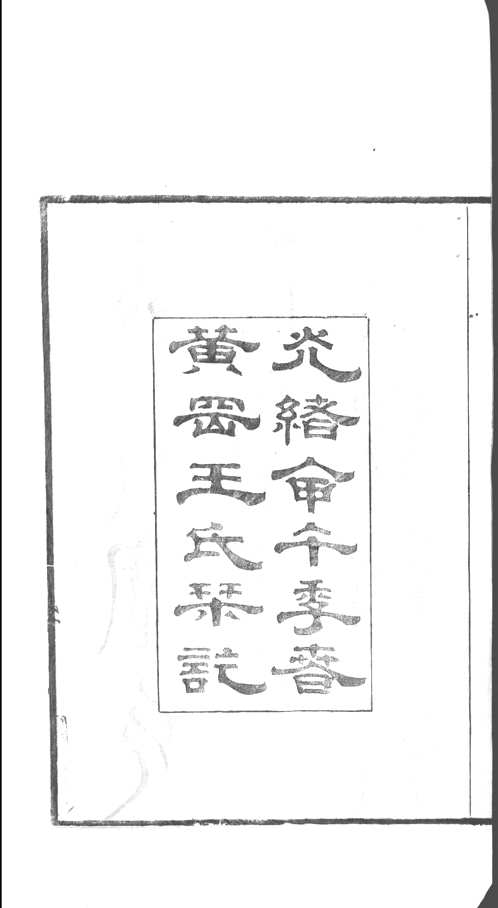 光緒甲午季春
黃岡王氏栞訖